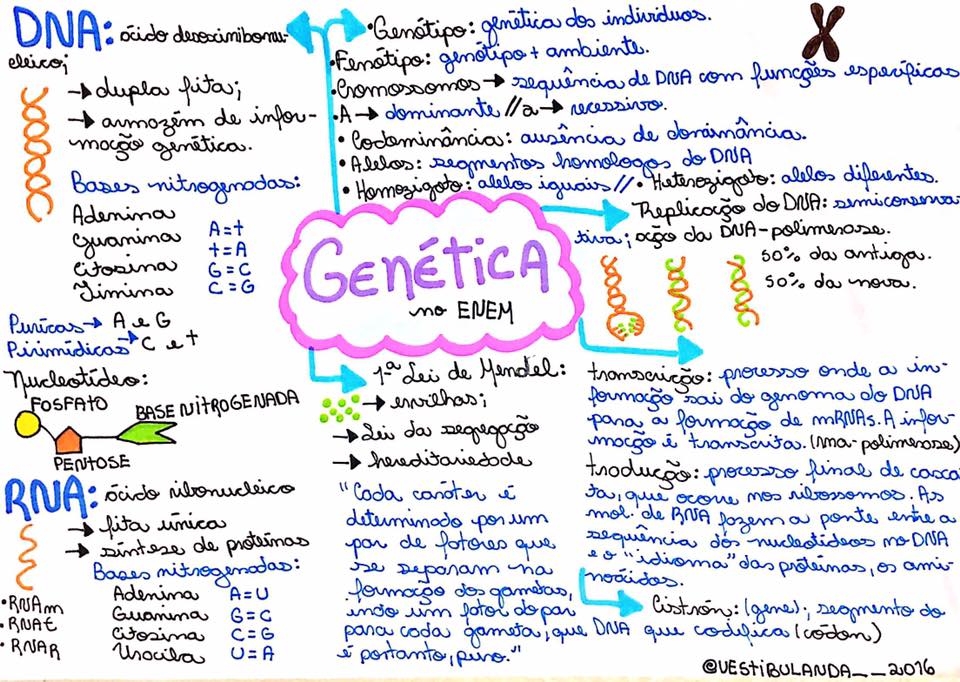 DNA: ácido desoxirribonu-
cleico;
→ dupla fita;
→ armazém de infor-
mação genética.
Bases nitrogenadas:
Adenina A=t
Guanina t=A
Citosina G=C
Timina C=G
Puricas→ A e G
Pirimídicas→ C e t
Nucleotídeo:
FOSFATO
BASE NITROGENADA
PENTOSE
RNA: ácido ribonucleico
→ fita única
→ síntese de proteínas
Bases nitrogenadas:
Adenina A=U
Guanina G=C
Citosina C=G
Uracila U=A
•RNAm
•RNAt
•RNAR
•Genótipo: genética dos indivíduos.
•Fenótipo: genótipo + ambiente.
•Cromossomos→ sequência de DNA com funções específicas
•A→ dominante // a→ recessivo.
•Codominância: ausência de dominância.
•Alelos: segmentos homólogos do DNA
•Homozigoto: alelos iguais // •Heterozigoto: alelos diferentes.
GENÉTICA
no ENEM
Replicação do DNA: semiconserva-
tiva; ação da DNA-polimerase.
50% da antiga.
50% da nova.
1ª Lei de Mendel:
→ ervilhas;
→ Lei da segregação
→ hereditariedade
"Cada caráter é
determinado por um
par de fatores que
se separam na
formação dos gametas,
indo um fator do par
para cada gameta, que
é portanto, puro."
transcrição: processo onde a in-
formação sai do genoma do DNA
para a formação de mRNAs. A infor-
mação é transcrita. (rna-polimerase)
tradução: processo final de casca-
ta, que ocorre nos ribossomos. As
mol. de RNA fazem a ponte entre a
sequência dos nucleotídeos no DNA
e o "idioma" das proteínas, os ami-
noácidos.
Cístron: (gene); segmento do
DNA que codifica (códon)
@VESTIBULANDA__2016